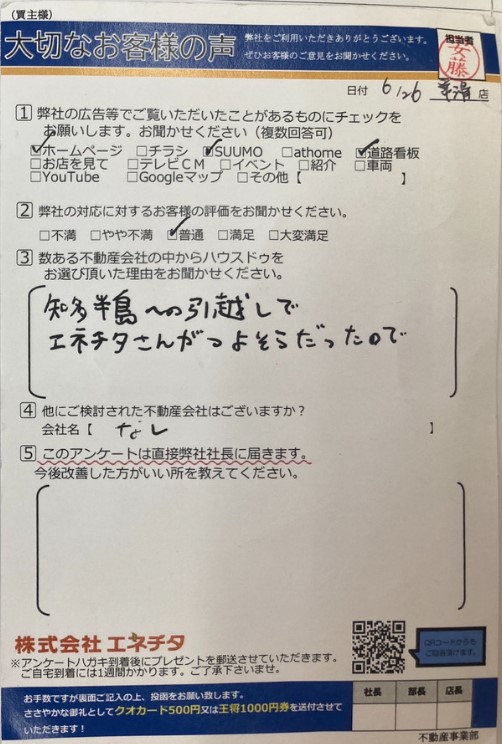 (買主様)
大切なお客様の声
弊社をご利用いただきありがとうございます。
ぜひお客様のご意見をお聞かせください。
担当者
安藤
日付 6/26 半田店
1 弊社の広告等でご覧いただいたことがあるものにチェックを
お願いします。お聞かせください（複数回答可）
☑ホームページ □チラシ ☑SUUMO □athome ☑道路看板
□お店を見て □テレビCM □イベント □紹介 □車両
□YouTube □Googleマップ □その他【 】
2 弊社の対応に対するお客様の評価をお聞かせください。
□不満 □やや不満 ☑普通 □満足 □大変満足
3 数ある不動産会社の中からハウスドゥを
お選び頂いた理由をお聞かせください。
知多半島への引越しで
エネチタさんがつよそうだったので
4 他にご検討された不動産会社はございますか？
会社名【 なし 】
5 このアンケートは直接弊社社長に届きます。
今後改善した方がいい所を教えてください。
株式会社 エネチタ
※アンケートハガキ到着後にプレゼントを郵送させていただきます。
ご自宅到着には1週間かかります。ご了承下さいませ。
QRコードからも
ご回答頂けます。
お手数ですが裏面ご記入の上、投函をお願い致します。
ささやかな御礼としてクオカード500円又は王将1000円券を送付させて
いただきます！
社長 部長 店長
不動産事業部